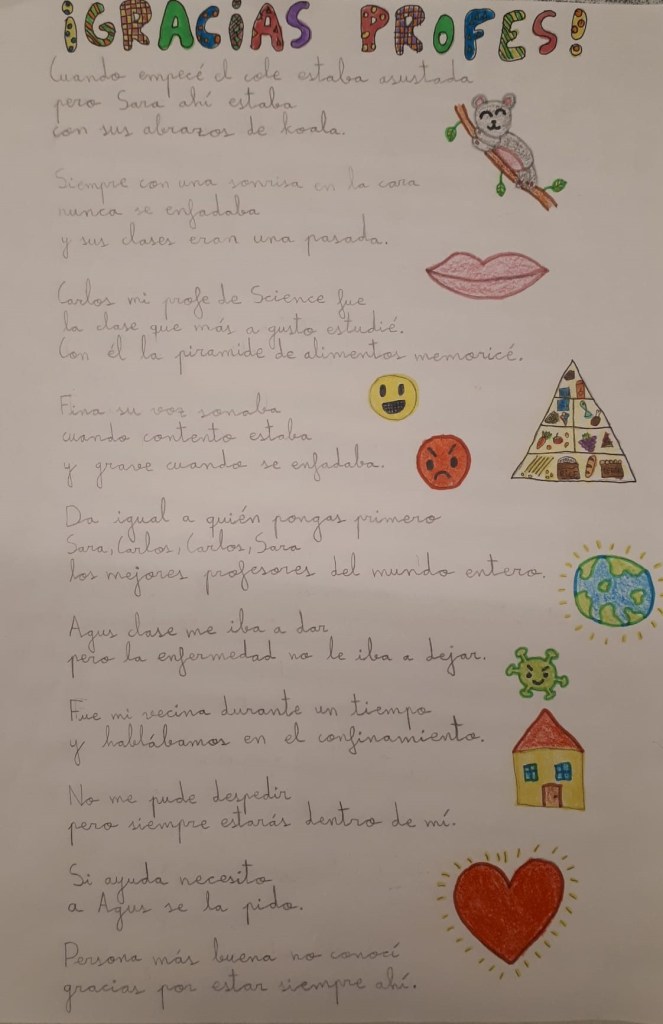 ¡GRACIAS PROFES!
Cuando empecé el cole estaba asustada
pero Sara ahí estaba
con sus abrazos de koala.
Siempre con una sonrisa en la cara
nunca se enfadaba
y sus clases eran una pasada.
Carlos mi profe de Science fue
la clase que más a gusto estudié.
Con él la piramide de alimentos memoricé.
Fina su voz sonaba
cuando contento estaba
y grave cuando se enfadaba.
Da igual a quién pongas primero
Sara, Carlos, Carlos, Sara
los mejores profesores del mundo entero.
Agus clase me iba a dar
pero la enfermedad no le iba a dejar.
Fue mi vecina durante un tiempo
y hablábamos en el confinamiento.
No me pude despedir
pero siempre estarás dentro de mí.
Si ayuda necesito
a Agus se la pido.
Persona más buena no conocí
gracias por estar siempre ahí.